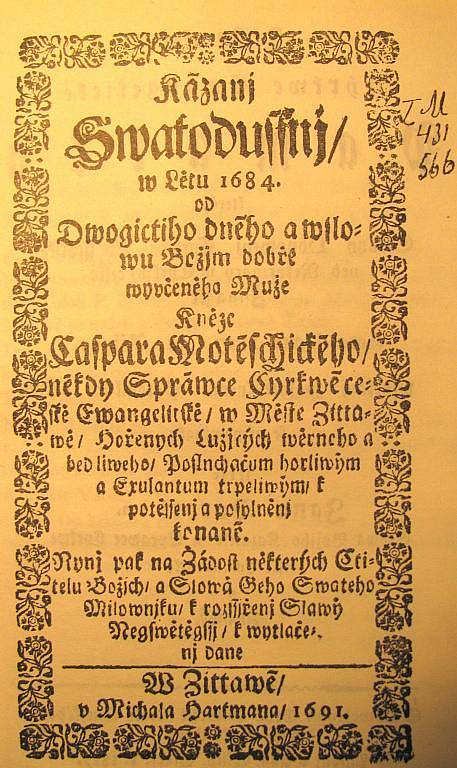 Kázanj
Swatodussnj/
w Létu 1684.
od
Dwogictiho dného a wslo-
wu Božjm dobře
wyvčeného Muže
Kněze
Caspara Motěschického/
někdy Spráwce Cyrkwě če-
ské Ewangelitské/ w Městě Zitta-
wě/ Hořenych Lužicých wěrneho a
bedliweho/ Posluchačum horliwým
a Exulantum trpeliwým/ k
potěssenj a posylněnj
konané.
Nynj pak na Žádost některých Cti-
telu Božich/ a Slowá Geho Swateho
Milownjku/ k rozssjřenj Slawý
Negswětěgssj/ k wytlače-
nj dane
W Zittawě/
v Michala Hartmana/ 1691.
I M
431
566